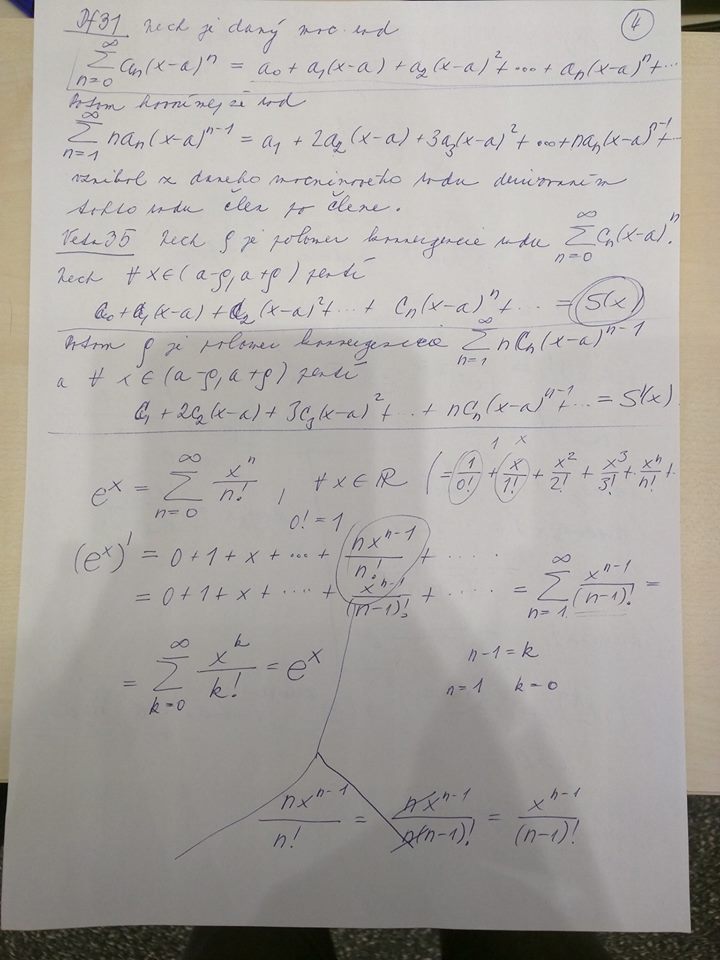 Df 31 Nech je daný moc. rad ④
∞∑n=0 aₙ(x-a)ⁿ = a₀ + a₁(x-a) + a₂(x-a)² + ... + aₙ(x-a)ⁿ + ...
Potom hovoríme, že rad
∞∑n=1 naₙ(x-a)ⁿ⁻¹ = a₁ + 2a₂(x-a) + 3a₃(x-a)² + ... + naₙ(x-a)ⁿ⁻¹ + ...
vznikol z daného mocninového radu derivovaním
tohto radu člen po člene.
Veta 35 Nech ρ je polomer konvergencie radu ∞∑n=0 cₙ(x-a)ⁿ.
Nech ∀ x∈(a-ρ, a+ρ) platí
c₀ + c₁(x-a) + c₂(x-a)² + ... + cₙ(x-a)ⁿ + ... = S(x)
Potom ρ je polomer konvergencie ∞∑n=1 ncₙ(x-a)ⁿ⁻¹
a ∀ x∈(a-ρ, a+ρ) platí
c₁ + 2c₂(x-a) + 3c₃(x-a)² + ... + ncₙ(x-a)ⁿ⁻¹ + ... = S'(x).
1 x
eˣ = ∞∑n=0 xⁿ/n! , ∀ x∈ℝ (= 1/0! + x/1! + x²/2! + x³/3! + xⁿ/n! +
0! = 1
(eˣ)' = 0 + 1 + x + ... + nxⁿ⁻¹/n! + .....
= 0 + 1 + x + .... + xⁿ⁻¹/(n-1)! + ..... = ∞∑n=1 xⁿ⁻¹/(n-1)! =
= ∞∑k=0 xᵏ/k! = eˣ n-1 = k
n=1 k=0
nxⁿ⁻¹/n! = nxⁿ⁻¹/n(n-1)! = xⁿ⁻¹/(n-1)!